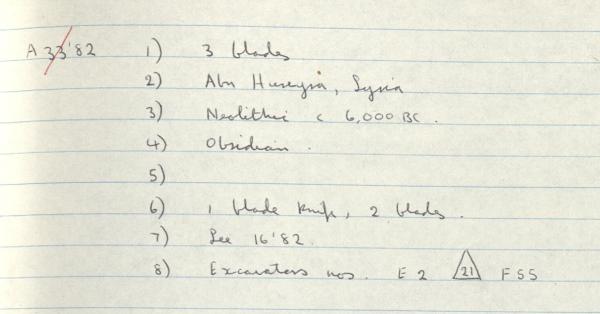 A 33'82 1) 3 blades
2) Abu Hureyra, Syria
3) Neolithic c 6,000 BC.
4) Obsidian.
5)
6) 1 blade knife, 2 blades.
7) See 16'82.
8) Excavators nos. E 2 21 F 55